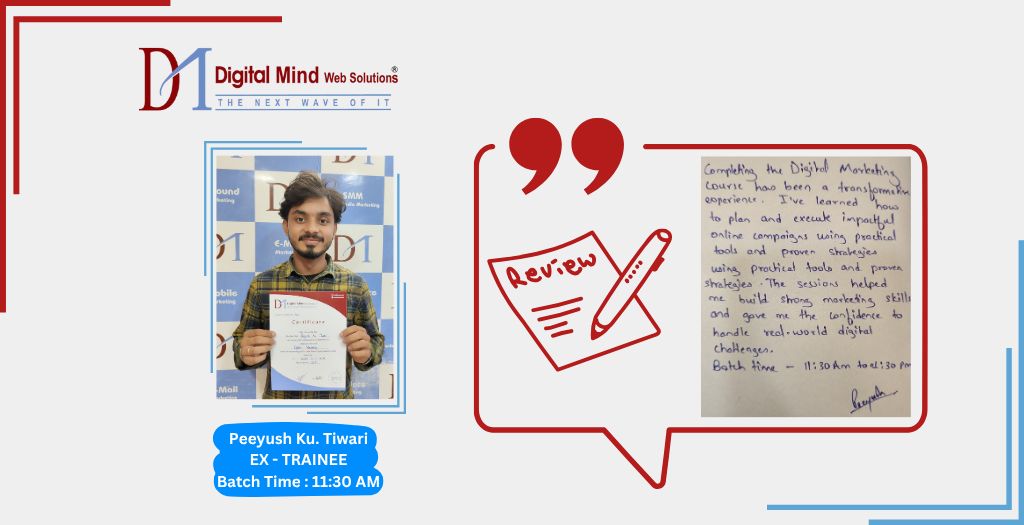 DM Digital Mind Web Solutions®
THE NEXT WAVE OF IT
SMM
E-M
Certificate
Peeyush Ku. Tiwari
EX - TRAINEE
Batch Time : 11:30 AM
Review
Completing the Digital Marketing
course has been a transformative
experience. I've learned how
to plan and execute impactful
online campaigns using practical
tools and proven strategies
using practical tools and proven
strategies. The sessions helped
me build strong marketing skills
and gave me the confidence to
handle real-world digital
challenges.
Batch time - 11:30 Am to 1:30 pm
Peeyush